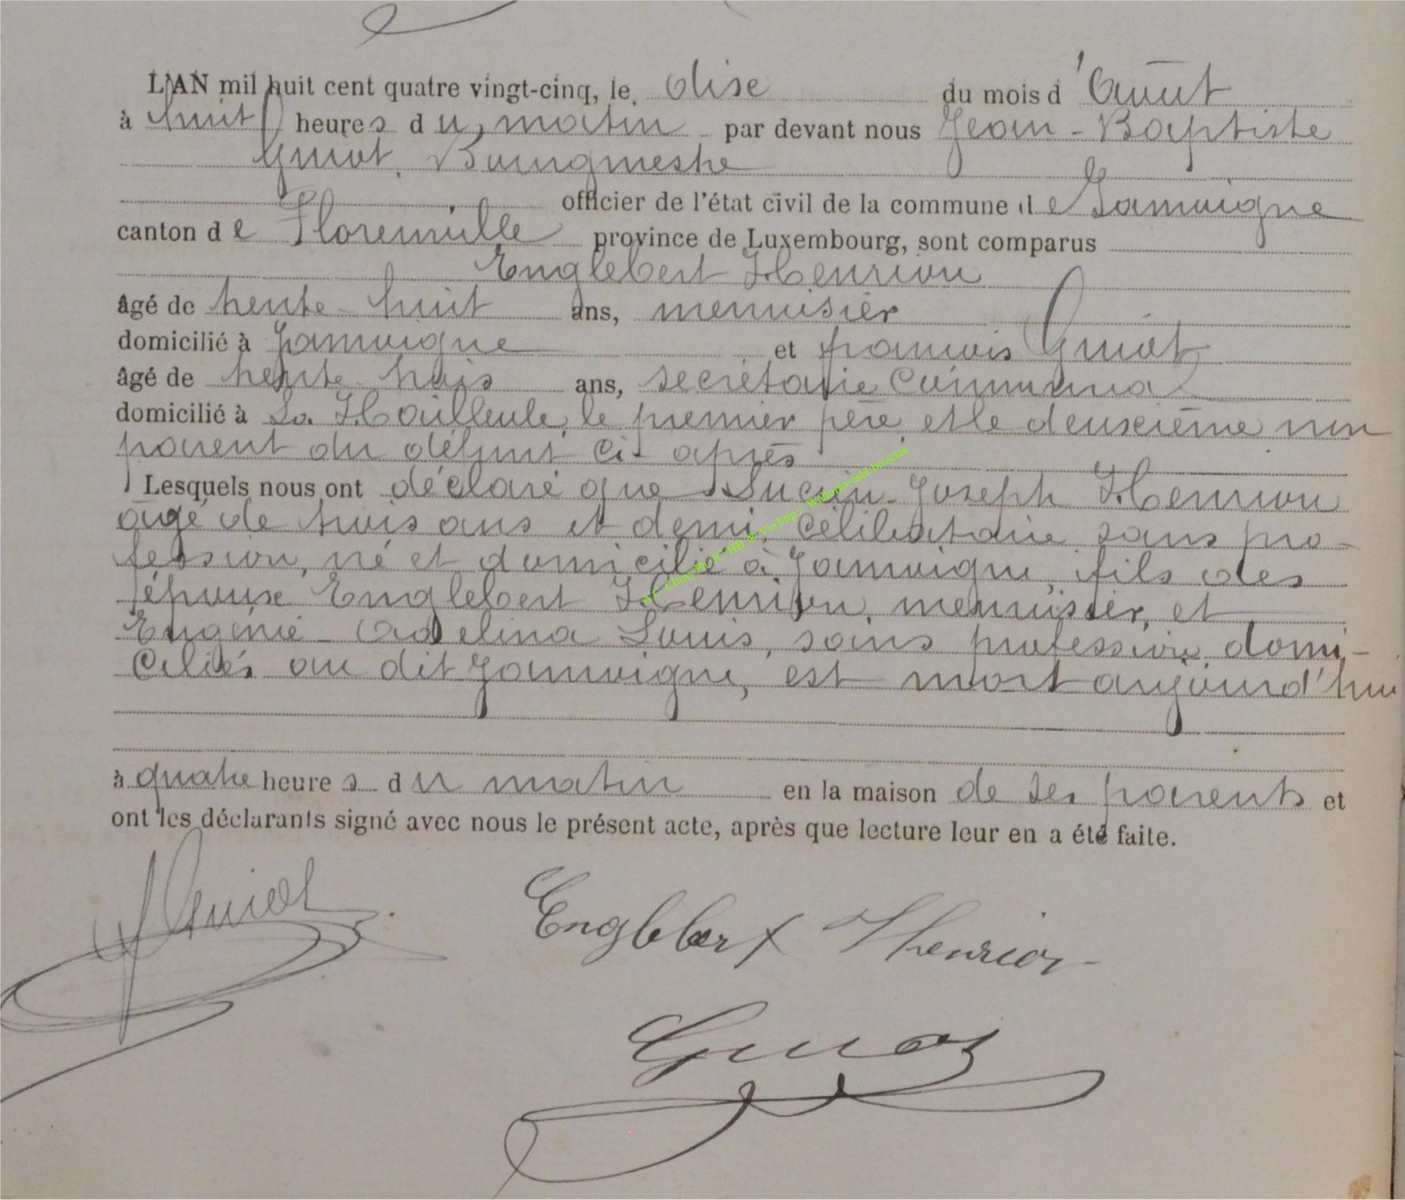 L'AN mil huit cent quatre vingt-cinq, le onze du mois d'Août
à huit heures du matin par devant nous Jean-Baptiste
Guiot, Bourgmestre
officier de l'état civil de la commune de Jamoigne
canton de Florenville province de Luxembourg, sont comparus
Englebert Henrion
âgé de trente-huit ans, menuisier
domicilié à Jamoigne et françois Guiot
âgé de trente-trois ans, secrétaire Communal
domicilié à La Hailleule, le premier père et le deuxième non
parent du défunt ci-après
Lesquels nous ont déclaré que Lucien-Joseph Henrion
âgé de trois ans et demi, célibataire sans pro-
fession, né et domicilié à Jamoigne, fils des
époux Englebert Henrion, menuisier, et
Eugénie-Adelina Louis, sans profession, domi-
ciliés au dit Jamoigne, est mort aujourd'hui
à quatre heures du matin en la maison de ses parents et
ont les déclarants signé avec nous le présent acte, après que lecture leur en a été faite.
Guiot
Englebert Henrion
Guiot